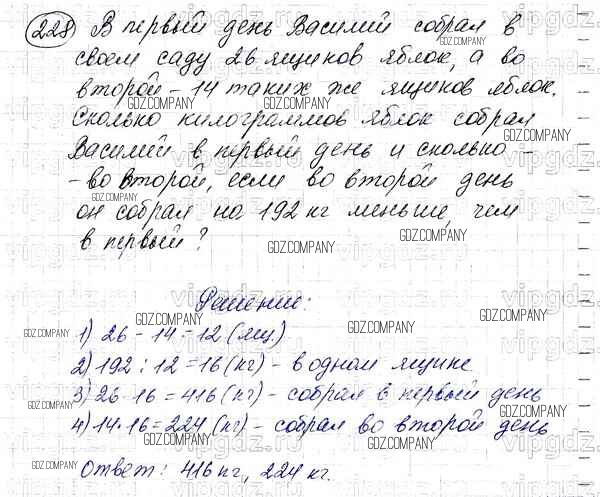 228 В первый день Василий собрал в
своем саду 26 ящиков яблок, а во
второй - 14 таких же ящиков яблок.
Сколько килограммов яблок собрал
Василий в первый день и сколько -
- во второй, если во второй день
он собрал на 192 кг меньше, чем
в первый?
Решение:
1) 26 - 14 = 12 (ящ.)
2) 192 : 12 = 16 (кг) - в одном ящике
3) 26 · 16 = 416 (кг) - собрал в первый день
4) 14 · 16 = 224 (кг) - собрал во второй день
Ответ: 416 кг, 224 кг.
GDZ.COMPANY
vipgdz.ru